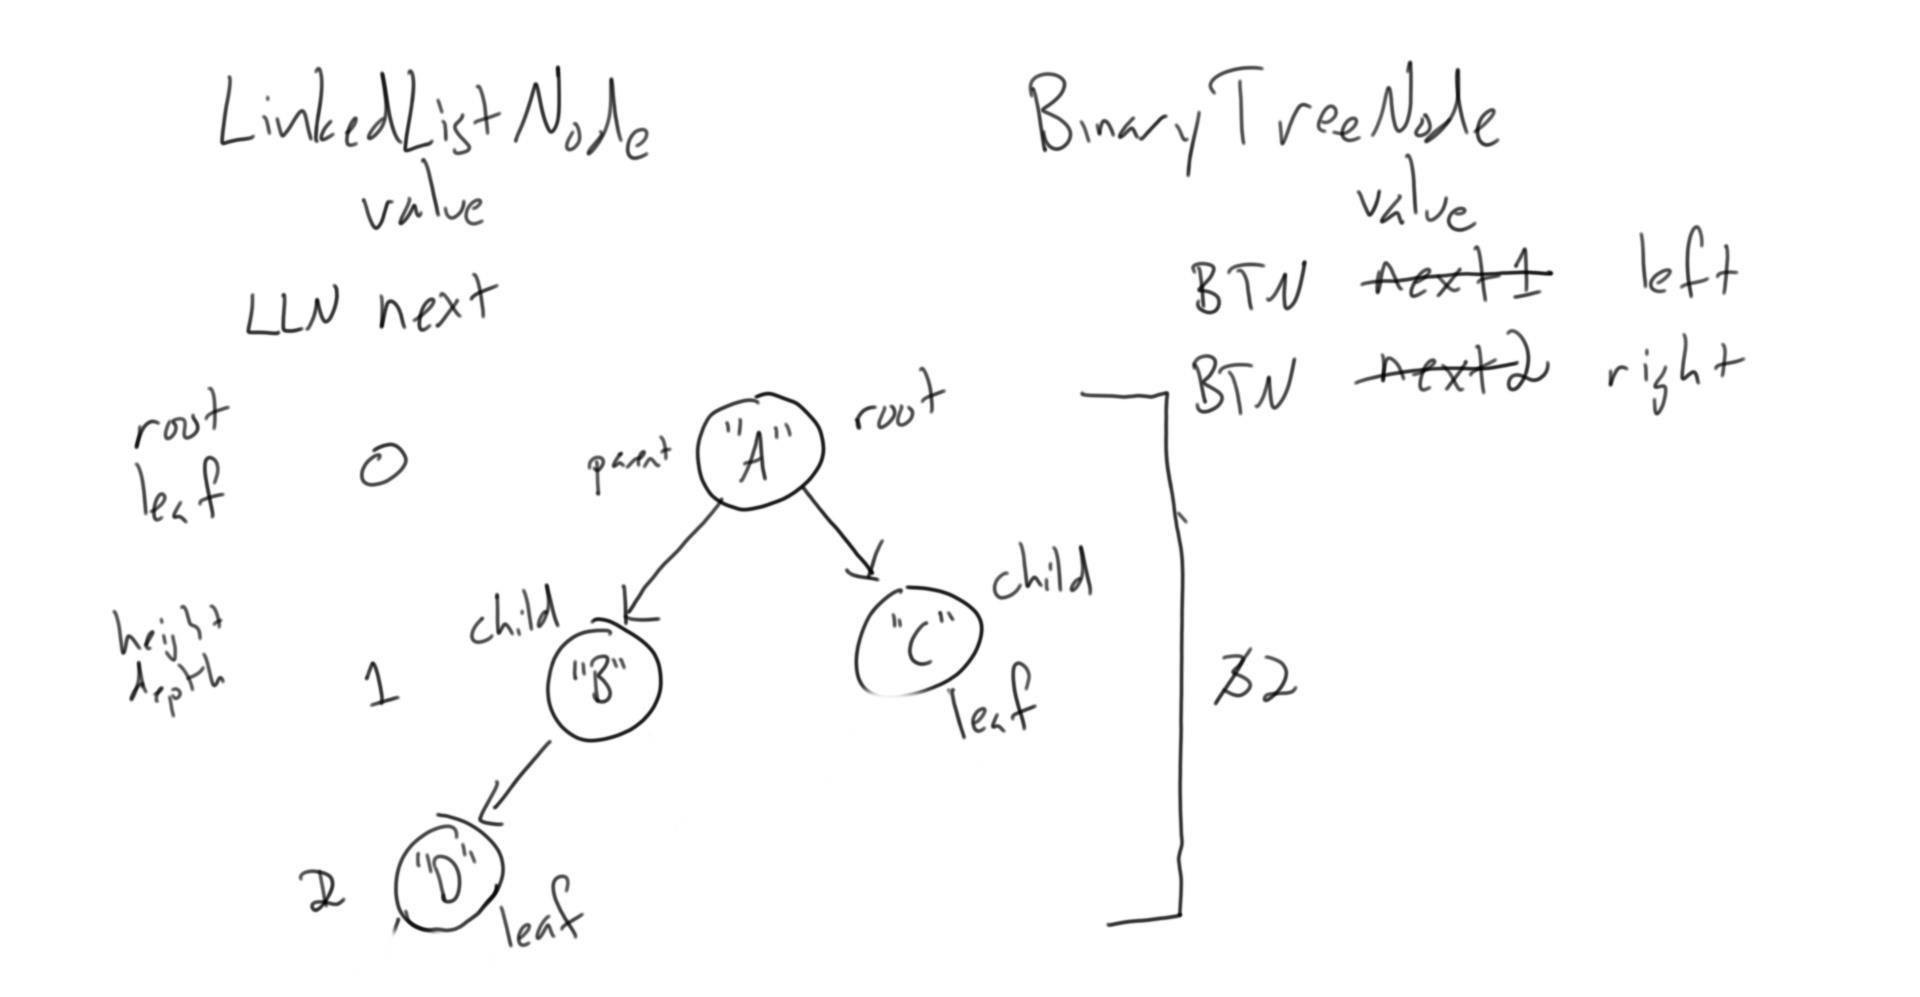 LinkedListNode
value
LLN next
BinaryTreeNode
value
BTN next1 left
BTN next2 right
root
leaf
height
depth
0
1
2
parent
"A"
root
child
"B"
"C"
child
leaf
"D"
leaf
3 2